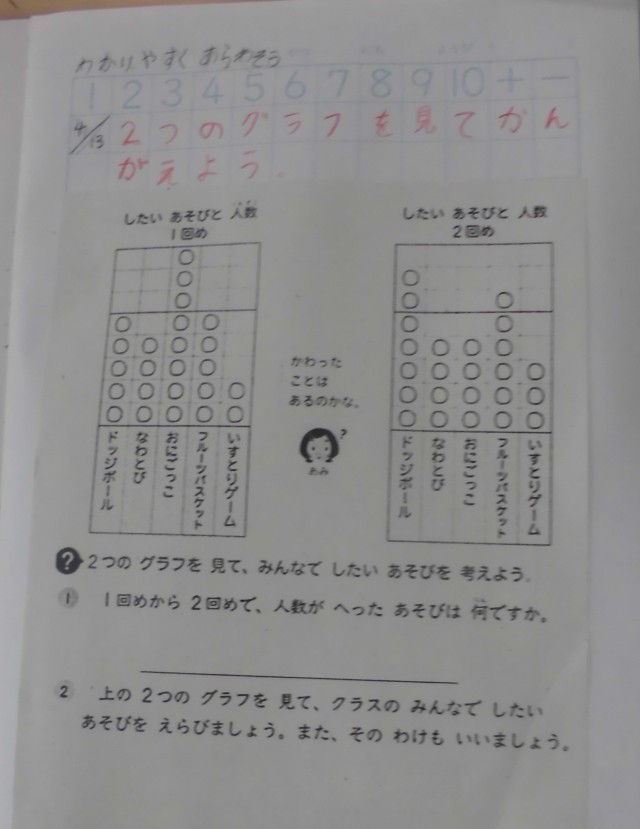 わかりやすく あらわそう
1 2 3 4 5 6 7 8 9 10 + −
4/13 2つのグラフを見てかん
がえよう.
したい あそびと 人数
1回め
したい あそびと 人数
2回め
かわった
ことは
あるのかな。
?
あみ
ドッジボール
なわとび
おにごっこ
フルーツバスケット
いすとりゲーム
ドッジボール
なわとび
おにごっこ
フルーツバスケット
いすとりゲーム
? 2つの グラフを 見て、みんなで したい あそびを 考えよう。
1 1回めから 2回めで、人数が へった あそびは 何ですか。
2 上の 2つの グラフを 見て、クラスの みんなで したい
あそびを えらびましょう。また、その わけも いいましょう。